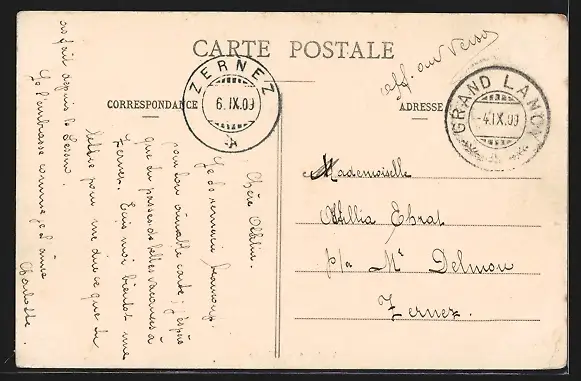 CARTE POSTALE
aff. au Verso
CORRESPONDANCE
ADRESSE
ZERNEZ
6.IX.09
GRAND LANCY
-4.IX.09
Mademoiselle
Ebrat
p/a Mr Delmou
Zernez.
Chère
Je te remercie beaucoup
pour ton aimable carte; j'espère
que tu passes de belles vacances à
Zernez. Ecris moi bientôt une
lettre pour me dire ce que tu
as fait depuis le
Je t'embrasse comme je t'aime
Charlotte.